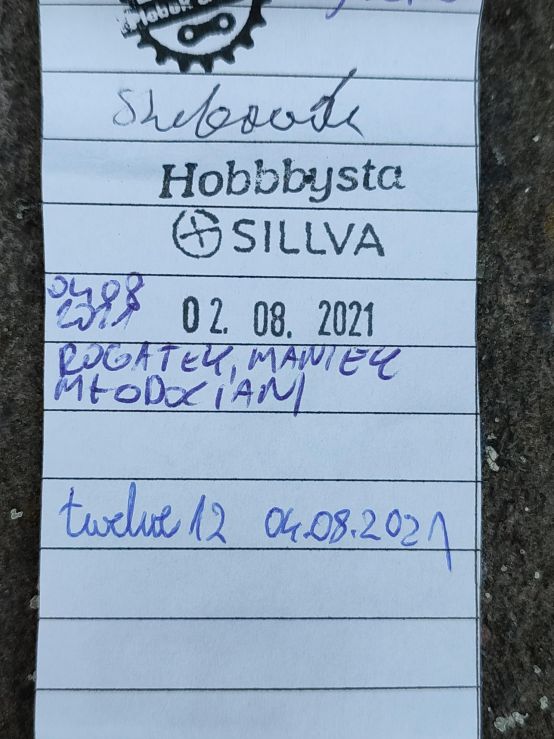 Hobbbysta
SILLVA
04.08
2021
02. 08. 2021
ROGATEK, MANIEK
MŁODOCIANI
twelve12 04.08.2021